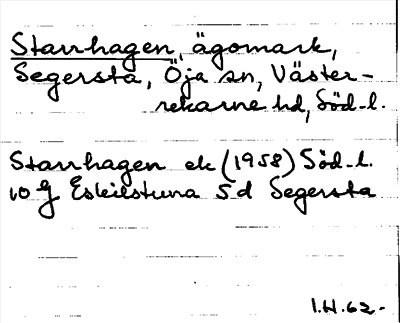 Starrhagen, ägomark,
Segersta, Öja sn, Väster-
rekarne hd, Söd-l.
Starrhagen ek (1958) Söd-l.
10 G Eskilstuna 5 d Segersta
I.H.62.-